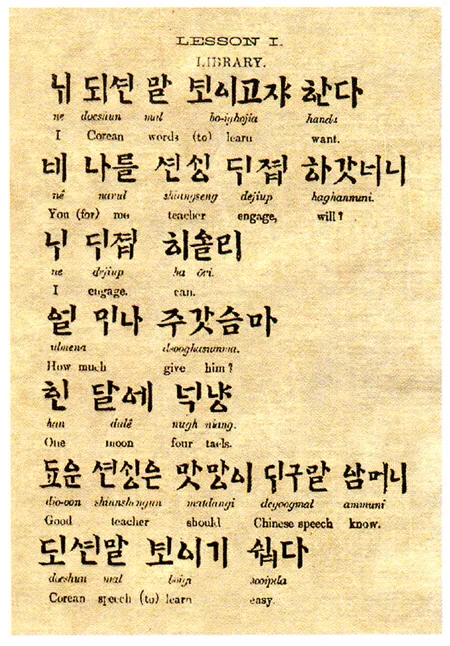 LESSON I.
LIBRARY.
ᄂᆡ 되션 말 보이고쟈 한다
ne doeshun mal bo-ighojia handa
I Corean words (to) learn want.
네 나를 션ᄉᆡᆼ ᄃᆡ졉 하갓너니
nê narul shiungseng dejiup haghannuni.
You (for) me teacher engage, will?
ᄂᆡ ᄃᆡ졉 히올리
ne dejiup ha
I engage. can.
얼 ᄆᆡ나 주갓슴마
ulmena dsooghasumma.
How much give him?
한 달에 넉냥
han dalê nugh niang.
One moon four taels.
됴운 션ᄉᆡᆼ은 맛망이 ᄃᆡ구말 암머니
dio-oon matdangi degoogmal ammuni
Good teacher should Chinese speech know.
되션말 보이기 쉽다
doeshun mal boigi sooipda
Corean speech (to) learn easy.